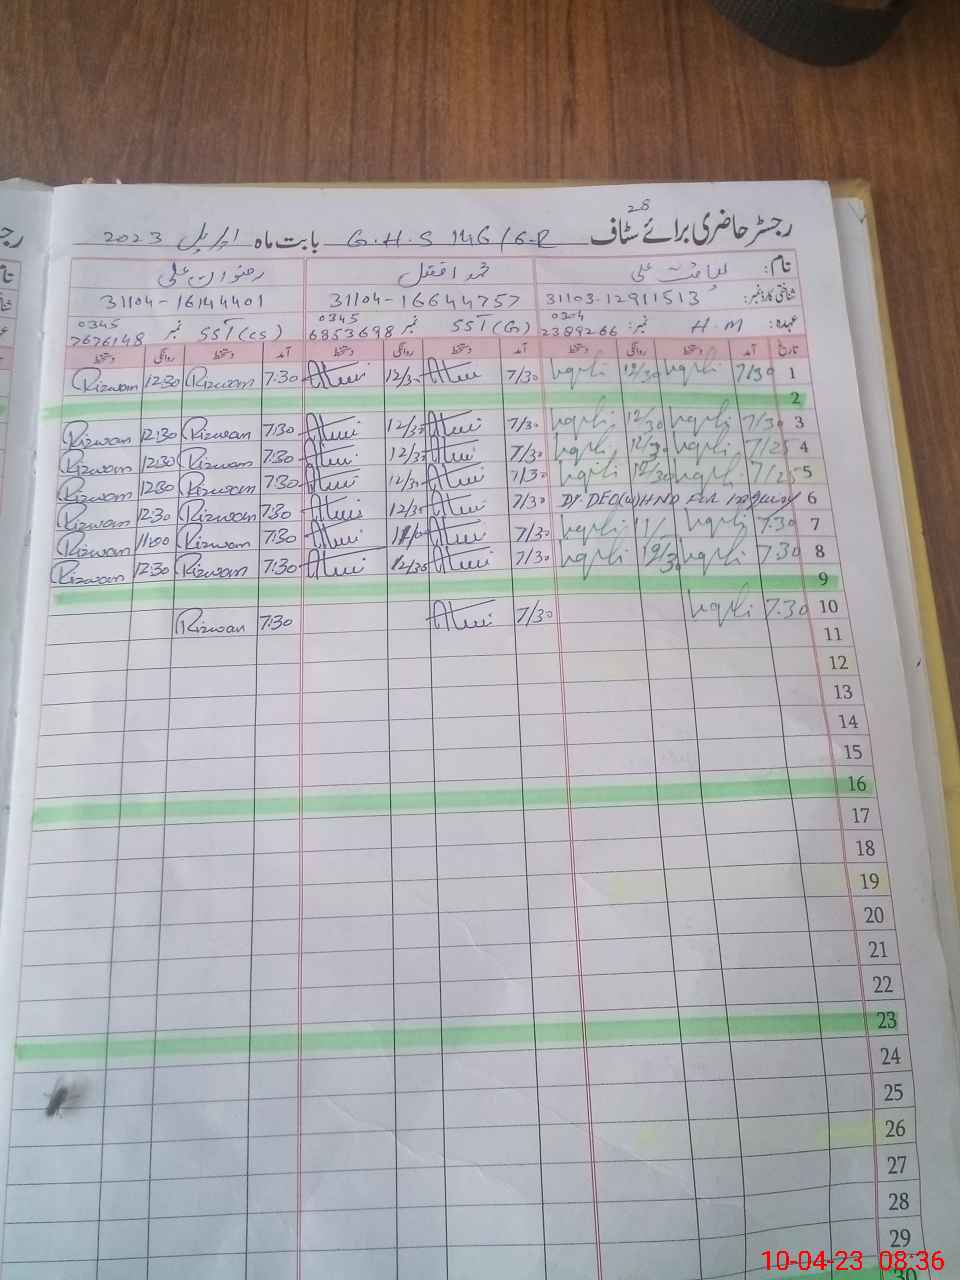 28
رجسٹر حاضری برائے سٹاف G.H.S 146/6-R بابت ماہ اپریل 2023
نام: لیاقت علی محمد افضل رضوان علی
شناختی کارڈ نمبر: 31103-12911513 31104-16644757 31104-16144401
عہدہ: H.M نمبر: 0304 2389266 SST (G) نمبر 0345 6853698 SST (CS) نمبر 0345 7676148
تاریخ آمد دستخط روانگی دستخط آمد دستخط روانگی دستخط آمد دستخط روانگی دستخط
1 7/30 12/30 7/30 12/30 7:30 Rizwan 12:30 Rizwan
2
3 7/30 12/30 7/30 12/30 7:30 Rizwan 12:30 Rizwan
4 7/25 12/30 7/30 12/30 7:30 Rizwan 12:30 Rizwan
5 7/25 12/30 7/30 12/30 7:30 Rizwan 12:30 Rizwan
6 Dy. DEO(W) HND For Inquiry 7/30 12/30 7:30 Rizwan 12:30 Rizwan
7 7.30 11/ 7/30 7:30 Rizwan 11:00 Rizwan
8 7.30 12/30 7/30 12/30 7:30 Rizwan 12:30 Rizwan
9
10 7.30 7/30 7:30 Rizwan
11
12
13
14
15
16
17
18
19
20
21
22
23
24
25
26
27
28
29
30
10-04-23 08:36